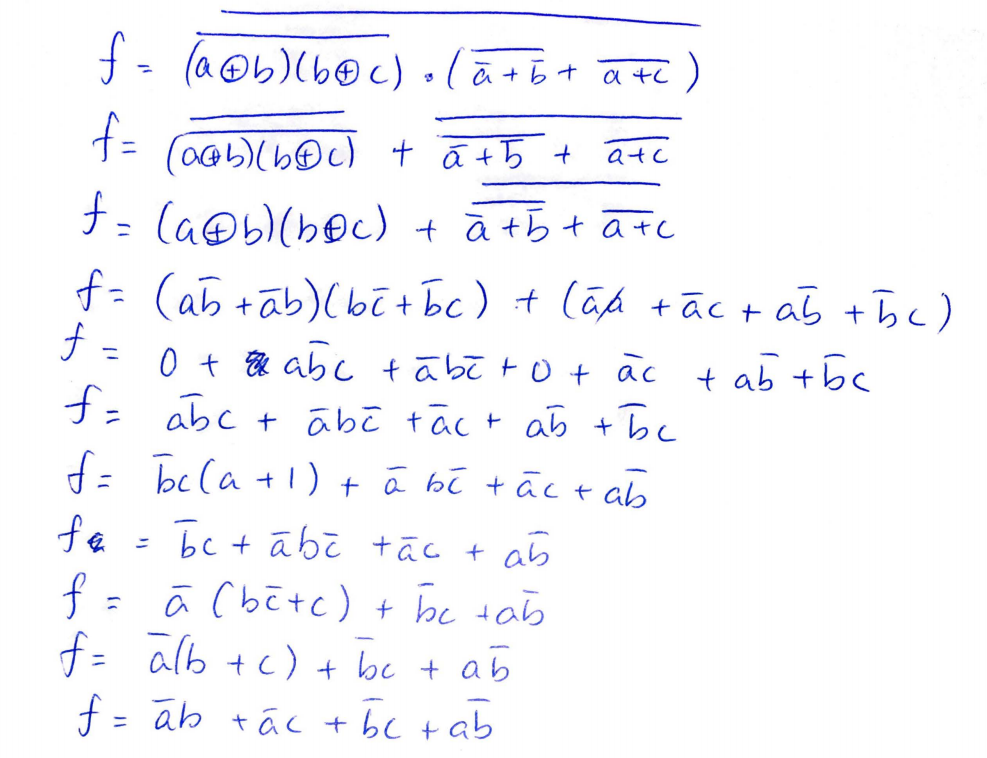 f = \overline{\overline{(a⊕b)(b⊕c)} · (\overline{ā + b̄} + \overline{a + c})}
f = \overline{\overline{(a⊕b)(b⊕c)}} + \overline{\overline{ā + b̄} + \overline{a + c}}
f = (a⊕b)(b⊕c) + \overline{\overline{ā + b̄} + \overline{a + c}}
f = (ab̄ + āb)(bc̄ + b̄c) + (āa + āc + ab̄ + b̄c)
f = 0 + ab̄c + ābc̄ + 0 + āc + ab̄ + b̄c
f = ab̄c + ābc̄ + āc + ab̄ + b̄c
f = b̄c(a + 1) + ābc̄ + āc + ab̄
f = b̄c + ābc̄ + āc + ab̄
f = ā(bc̄ + c) + b̄c + ab̄
f = ā(b + c) + b̄c + ab̄
f = āb + āc + b̄c + ab̄